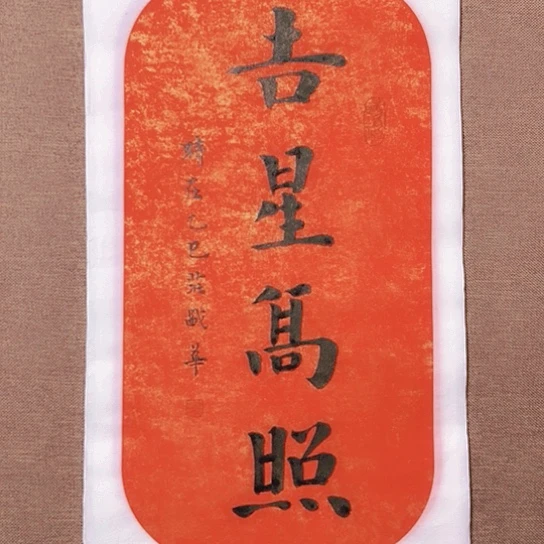 吉星髙照
時在乙巳莊華